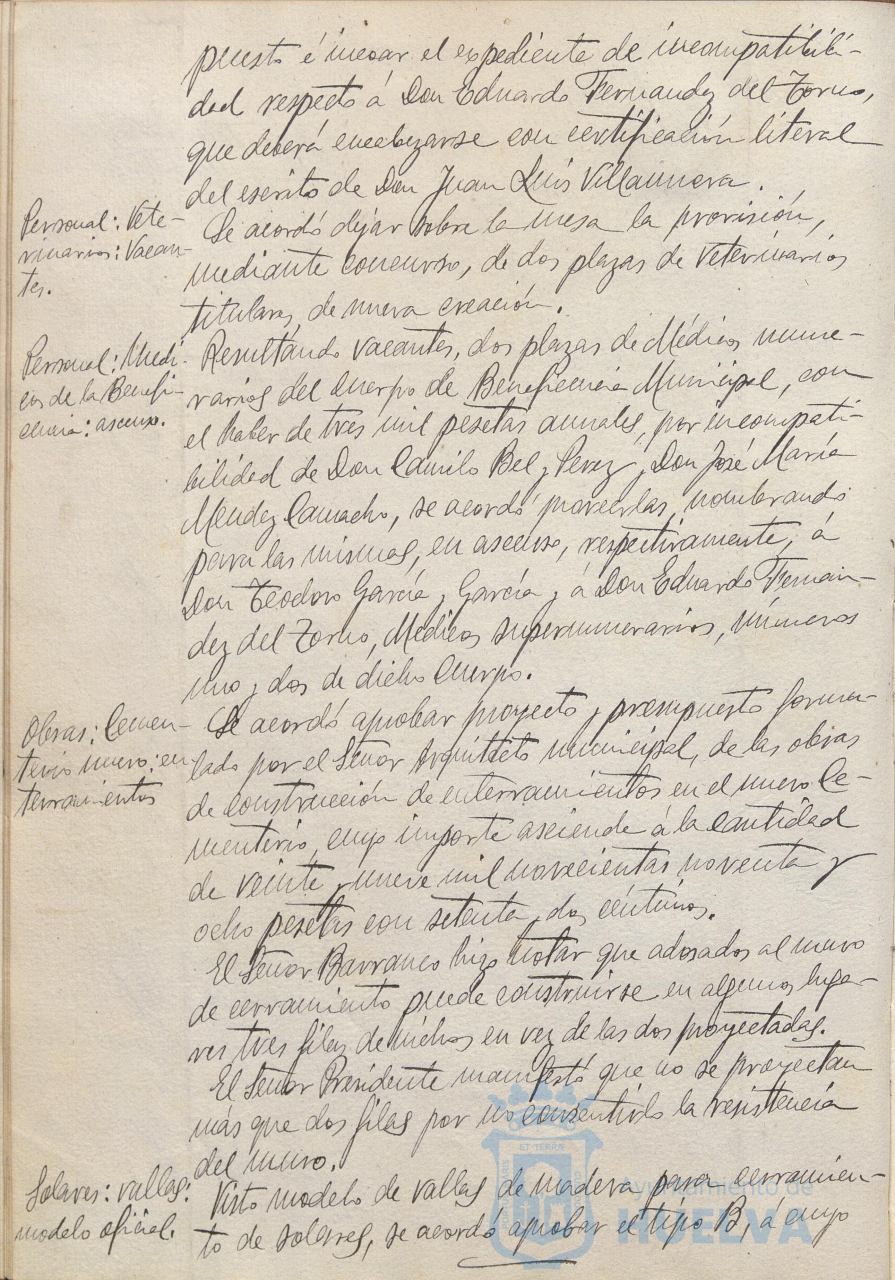 puesto é incoar el expediente de incompatibili-
dad respecto á Don Eduardo Fernandez del Torno,
que deberá encabezarse con certificación literal
del escrito de Don Juan Luís Villanueva.
Personal: Vete-
rinarios: Vacan-
tes.
Se acordó dejar sobre la mesa la provisión,
mediante concurso, de dos plazas de Veterinarios
titulares, de nueva creación.
Personal: Médi-
cos de la Benefi-
cencia: ascenso.
Resultando vacantes, dos plazas de Médicos nume-
rarios del Cuerpo de Beneficencia Municipal, con
el haber de tres mil pesetas anuales, por incompati-
bilidad de Don Camilo Bel y Perez y Don José María
Mendez Camacho, se acordó proveerlas, nombrando
para las mismas, en ascenso, respectivamente, á
Don Teodoro García y García y á Don Eduardo Fernan-
dez del Torno, Médicos supernumerarios, números
uno y dos de dicho Cuerpo.
Obras: Cemen-
terio nuevo: en
terramientos
Se acordó aprobar proyecto y presupuesto formu-
lado por el Señor Arquitecto municipal, de las obras
de construcción de enterramientos en el nuevo Ce-
menterio, cuyo importe asciende á la cantidad
de veinte y nueve mil novecientas noventa y
ocho pesetas con setenta y dos céntimos.
El Señor Barranco hizo notar que adosados al muro
de cerramiento puede construirse en algunos luga-
res tres filas de nichos en vez de las dos proyectadas.
El Señor Presidente manifestó que no se proyectan
más que dos filas por no consentirlo la resistencia
del muro.
Solares: vallas:
modelo oficial.
Visto modelo de vallas de madera para cerramien-
to de solares, se acordó aprobar el tipo B, á cuyo
Ayuntamiento de
HUELVA